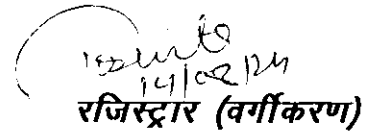 14/02/24
रजिस्ट्रार (वर्गीकरण)